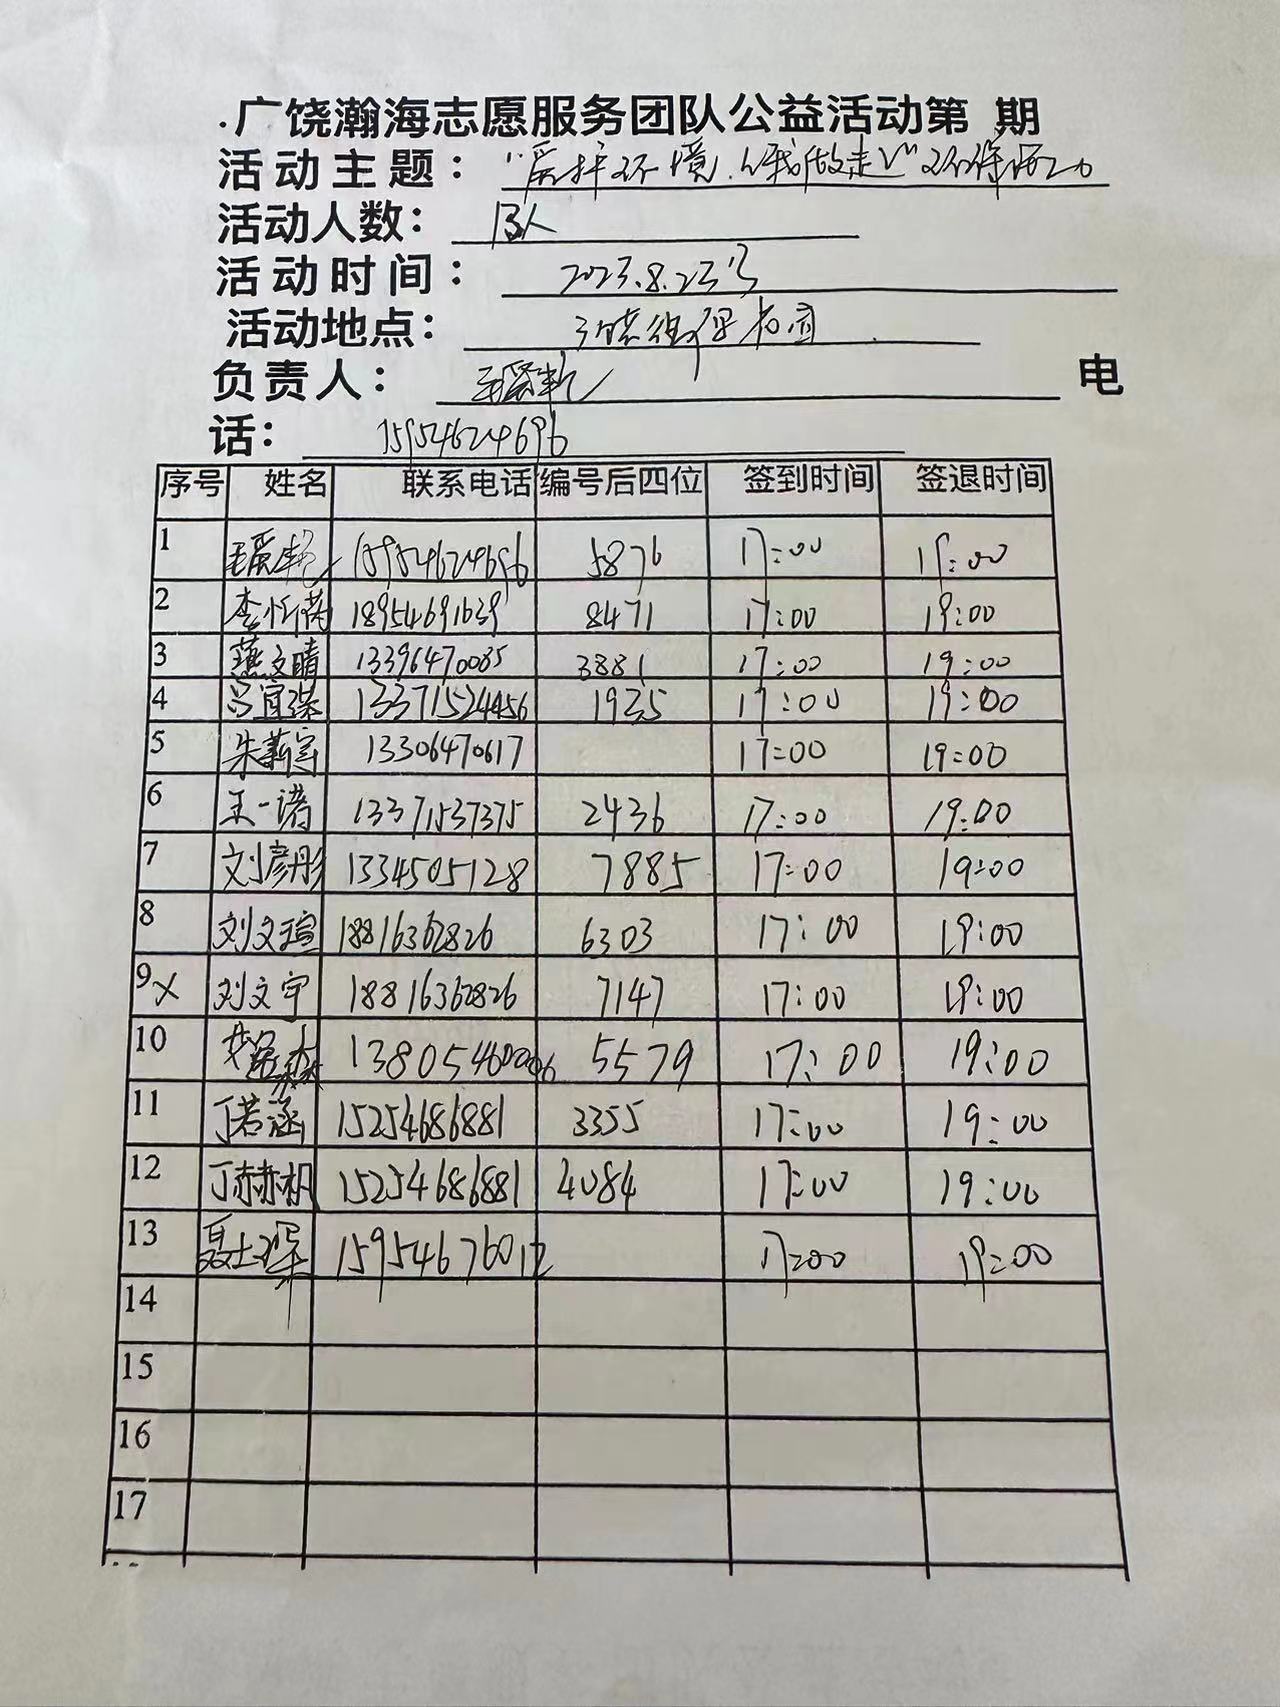 .广饶瀚海志愿服务团队公益活动第 期
活动主题："爱护环境，从我做起"环保活动
活动人数：13人
活动时间：2023.8.23号
活动地点：
负责人： 电
话：15954624696
序号 姓名 联系电话 编号后四位 签到时间 签退时间
1 15954624696 5876 17:00 19:00
2 李忻 18954691639 8471 17:00 19:00
3 燕文晴 13396470085 3881 17:00 19:00
4 吕宜 13371524456 1935 17:00 19:00
5 朱 13306470617 17:00 19:00
6 王一诺 13371537375 2436 17:00 19:00
7 刘彦彤 13345051128 7885 17:00 19:00
8 刘文瑄 18816362826 6303 17:00 19:00
9 x 刘文宇 18816362826 7147 17:00 19:00
10 5579 17:00 19:00
11 丁若涵 15254686881 3355 17:00 19:00
12 丁赫枫 15254686881 4084 17:00 19:00
13 聂士琛 15954676012 17:00 19:00
14
15
16
17